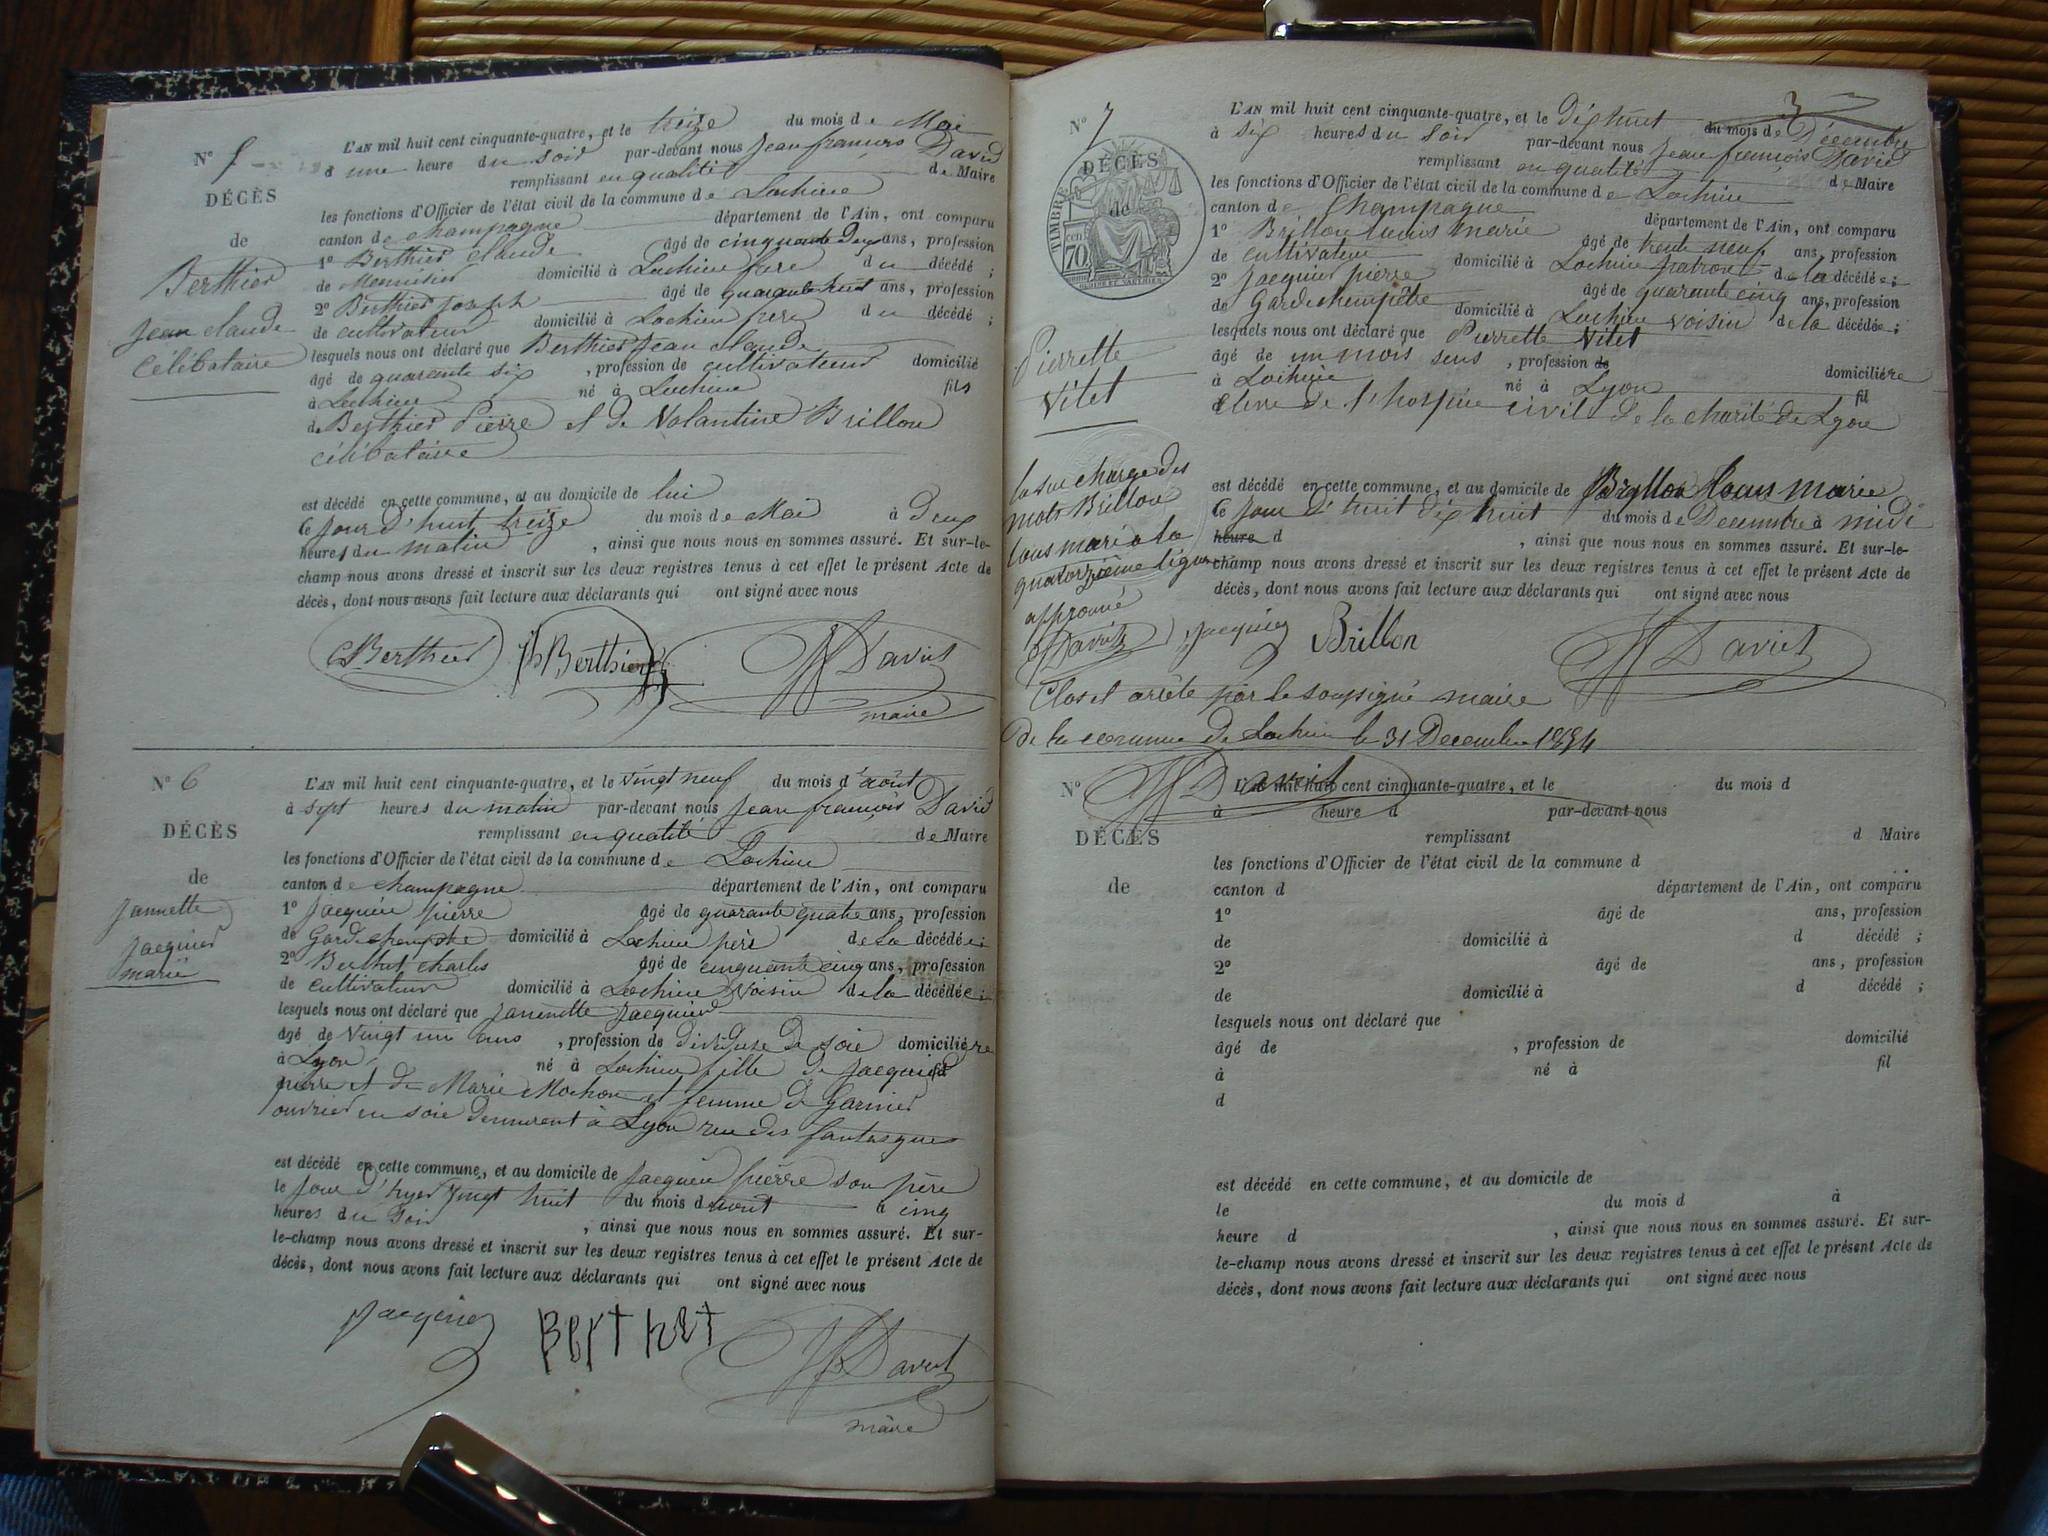 N° 5
DÉCÈS
de
Berthier
Jean claude
célibataire
L'AN mil huit cent cinquante-quatre, et le treize du mois de Mai
à une heure du soir par-devant nous Jean françois David
remplissant en qualité de Maire
les fonctions d'Officier de l'état civil de la commune de Lochieu
canton de champagne département de l'Ain, ont comparu
1° Berthier claude âgé de cinquante deux ans, profession
de Menuisier domicilié à Lochieu frere du décédé ;
2° Berthier joseph âgé de quarante huit ans, profession
de cultivateur domicilié à Lochieu frere du décédé ;
lesquels nous ont déclaré que Berthier Jean claude
âgé de quarante six , profession de cultivateur domicilié
à Lochieu né à Lochieu fils
de Berthier Pierre et de Valantine Brillon
célibataire
est décédé en cette commune, et au domicile de lui
le jour d'huit treize du mois de Mai à deux
heures du matin , ainsi que nous nous en sommes assuré. Et sur-le-
champ nous avons dressé et inscrit sur les deux registres tenus à cet effet le présent Acte de
décès, dont nous avons fait lecture aux déclarants qui ont signé avec nous
CBerthier JhBerthier Daviet
maire
N° 6
DÉCÈS
de
Jannette
Jacquier
marié
L'AN mil huit cent cinquante-quatre, et le vingt neuf du mois d'août
à sept heures du matin par-devant nous Jean françois David
remplissant en qualité de Maire
les fonctions d'Officier de l'état civil de la commune de Lochieu
canton de champagne département de l'Ain, ont comparu
1° Jacquier pierre âgé de quarante quatre ans, profession
de Garde champetre domicilié à Lochieu père de la décédée ;
2° Berthet charles âgé de cinquante cinq ans, profession
de cultivateur domicilié à Lochieu voisin de la décédée ;
lesquels nous ont déclaré que Jannette Jacquier
âgé de vingt un ans , profession de divideuse de soie domiciliére
à Lyon né à Lochieu fille de Jacquier
pierre et de Marie Mochon et femme de Garnier
ouvrier en soie demeurent à Lyon rue des fantasques
est décédé en cette commune, et au domicile de Jacquier pierre son père
le jour d'hyer vingt huit du mois d'aout à cinq
heures du soir , ainsi que nous nous en sommes assuré. Et sur-
le-champ nous avons dressé et inscrit sur les deux registres tenus à cet effet le présent Acte de
décès, dont nous avons fait lecture aux déclarants qui ont signé avec nous
Jacquier Berthet Daviet
maire
3
N° 7
DÉCÈS
de
TIMBRE
70 cen
Pierrette
Vitet
L'AN mil huit cent cinquante-quatre, et le dix huit du mois de Décembre
à six heures du soir par-devant nous Jean françois David
remplissant en qualité de Maire
les fonctions d'Officier de l'état civil de la commune de Lochieu
canton de Champagne département de l'Ain, ont comparu
1° Brillon louis marie âgé de trente neuf ans, profession
de cultivateur domicilié à Lochieu patron de la décédée ;
2° Jacquier pierre âgé de quarante cinq ans, profession
de Garde champêtre domicilié à Lochieu voisin de la décédée ;
lesquels nous ont déclaré que Pierrette Vitet
âgé de un mois sens , profession de domiciliére
à Lochieu né à Lyon fil
élève de l'hospice civil de la charité de Lyon
est décédé en cette commune, et au domicile de Brillon louis marie
le jour d'huit dix huit du mois de Decembre à midi
heure d , ainsi que nous nous en sommes assuré. Et sur-le-
champ nous avons dressé et inscrit sur les deux registres tenus à cet effet le présent Acte de
décès, dont nous avons fait lecture aux déclarants qui ont signé avec nous
la sur charge des
mots Brillon
louis marie à la
quatorzième ligne
approuvé
Daviet Jacquier Brillon Daviet
Clos et arrêté par le soussigné maire
de la commune de Lochieu le 31 Decembre 1854
Daviet
N°
DÉCÈS
de
L'AN mil huit cent cinquante-quatre, et le du mois d
à heure d par-devant nous
remplissant d Maire
les fonctions d'Officier de l'état civil de la commune d
canton d département de l'Ain, ont comparu
1° âgé de ans, profession
de domicilié à d décédé ;
2° âgé de ans, profession
de domicilié à d décédé ;
lesquels nous ont déclaré que
âgé de , profession de domicilié
à né à fil
d
est décédé en cette commune, et au domicile de
le du mois d à
heure d , ainsi que nous nous en sommes assuré. Et sur-
le-champ nous avons dressé et inscrit sur les deux registres tenus à cet effet le présent Acte de
décès, dont nous avons fait lecture aux déclarants qui ont signé avec nous